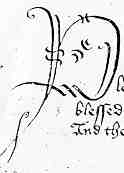 le
blessed
And the